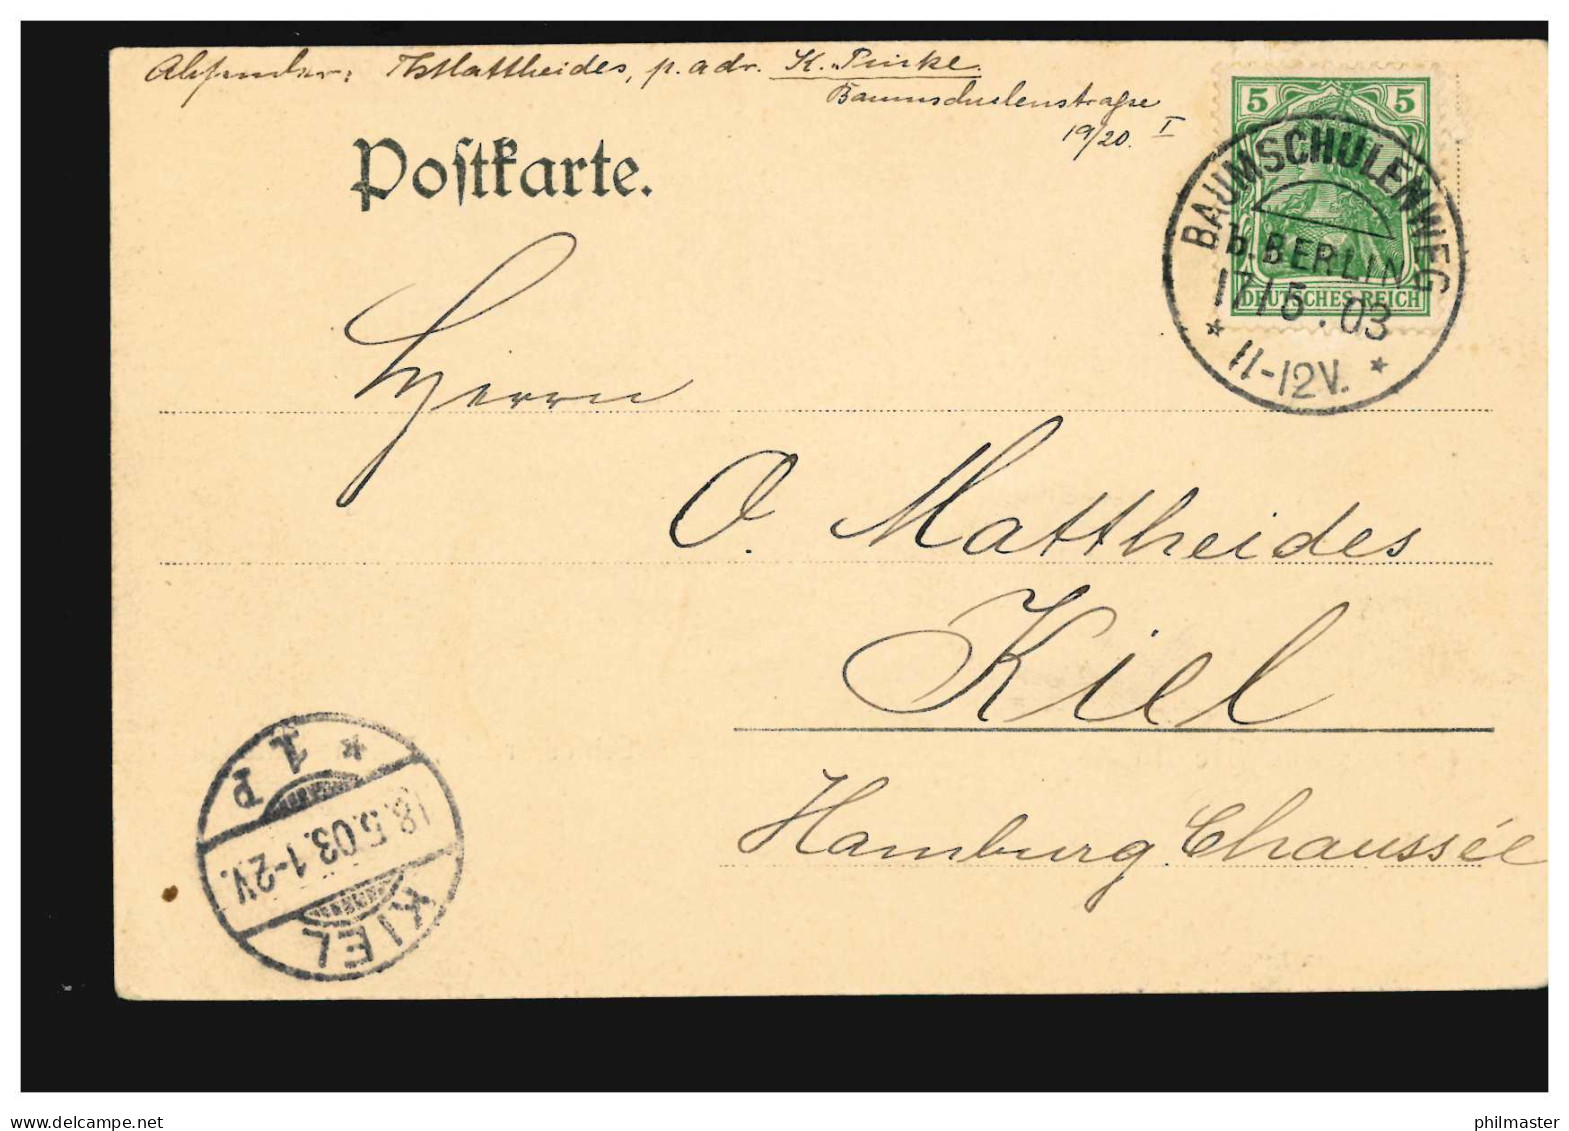 Absender: Th Mattheides, p. adr. K. Pinke.
Baumschulenstraße
19/20. I
Postkarte.
5 5
DEUTSCHES REICH
BAUMSCHULENWEG
b. BERLIN
17/5.03
* 11-12V. *
Herrn
O. Mattheides
Kiel
Hamburg. Chaussée
KIEL
18.5.03.1-2V.
* 1 P
www.delcampe.net
philmaster